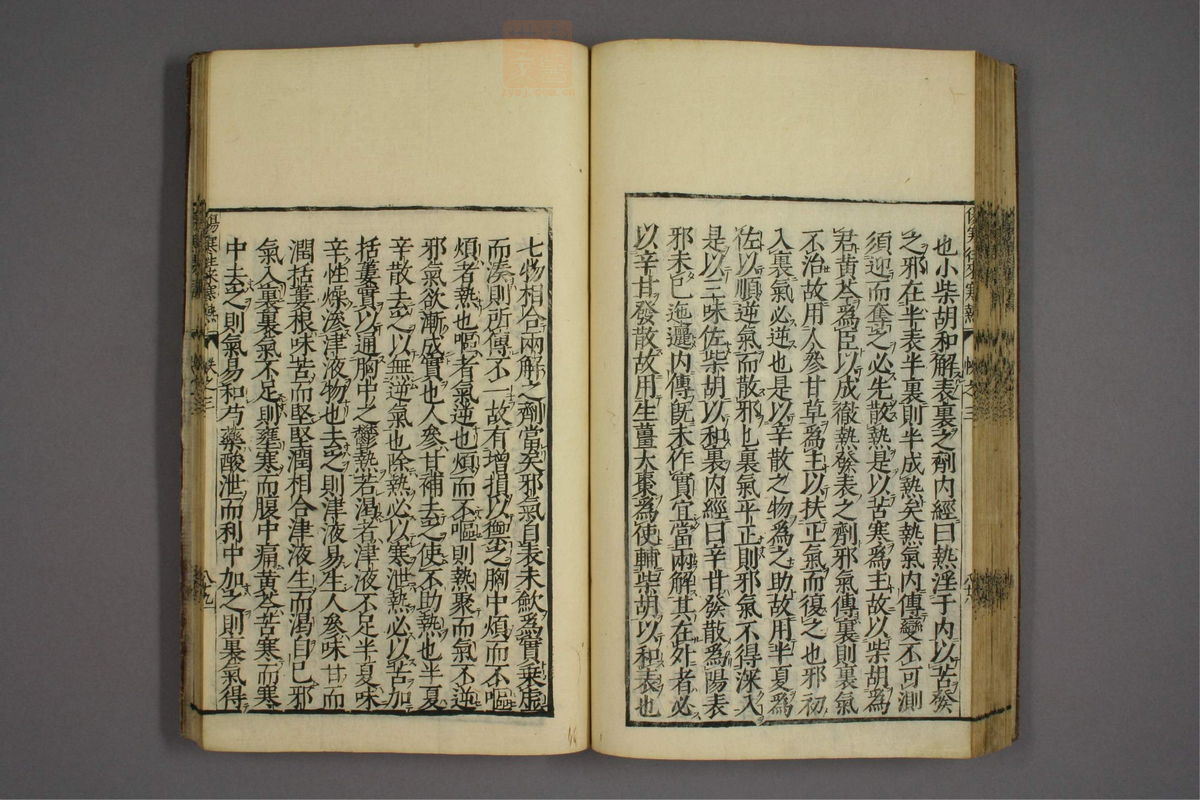 傷寒往來寒熱 卷之三
也小柴胡和解表裏之劑內經曰熱淫于內以苦發
之邪在半表半裏則半成熱矣熱氣內傳變不可測
須迎而奪之必先散熱是以苦寒爲主故以柴胡爲
君黃芩爲臣以成徹熱發表之劑邪氣傳裏則裏氣
不治故用人參甘草爲主以扶正氣而復之也邪初
入裏氣必逆也是以辛散之物爲之助故用半夏爲
佐以順逆氣而散邪也裏氣平正則邪氣不得深入
是以三味佐柴胡以和裏內經曰辛甘發散爲陽表
邪未已迤邐內傳旣未作實宜當兩解其在外者必
以辛甘發散故用生薑大棗爲使輔柴胡以和表也
七物相合兩解之劑當矣邪氣自表未歛爲實乘虛
而湊則所傳不一故有增損以禦之胸中煩而不嘔
煩者熱也嘔者氣逆也煩而不嘔則熱聚而氣不逆
邪氣欲漸成實也人參甘補去之使不助熱也半夏
辛散去之以無逆氣也除熱必以寒泄熱必以苦加
括蔞實以通胸中之鬱熱若渴者津液不足半夏味
辛性燥滲津液物也去之則津液易生人參味甘而
潤括蔞根味苦而堅堅潤相合津液生而渴自已邪
氣入裏裏氣不足則壅寒而腹中痛黃芩苦寒而寒
中去之則氣易和芍藥酸泄而利中加之則裏氣得
傷寒往來寒熱 卷之三 八九